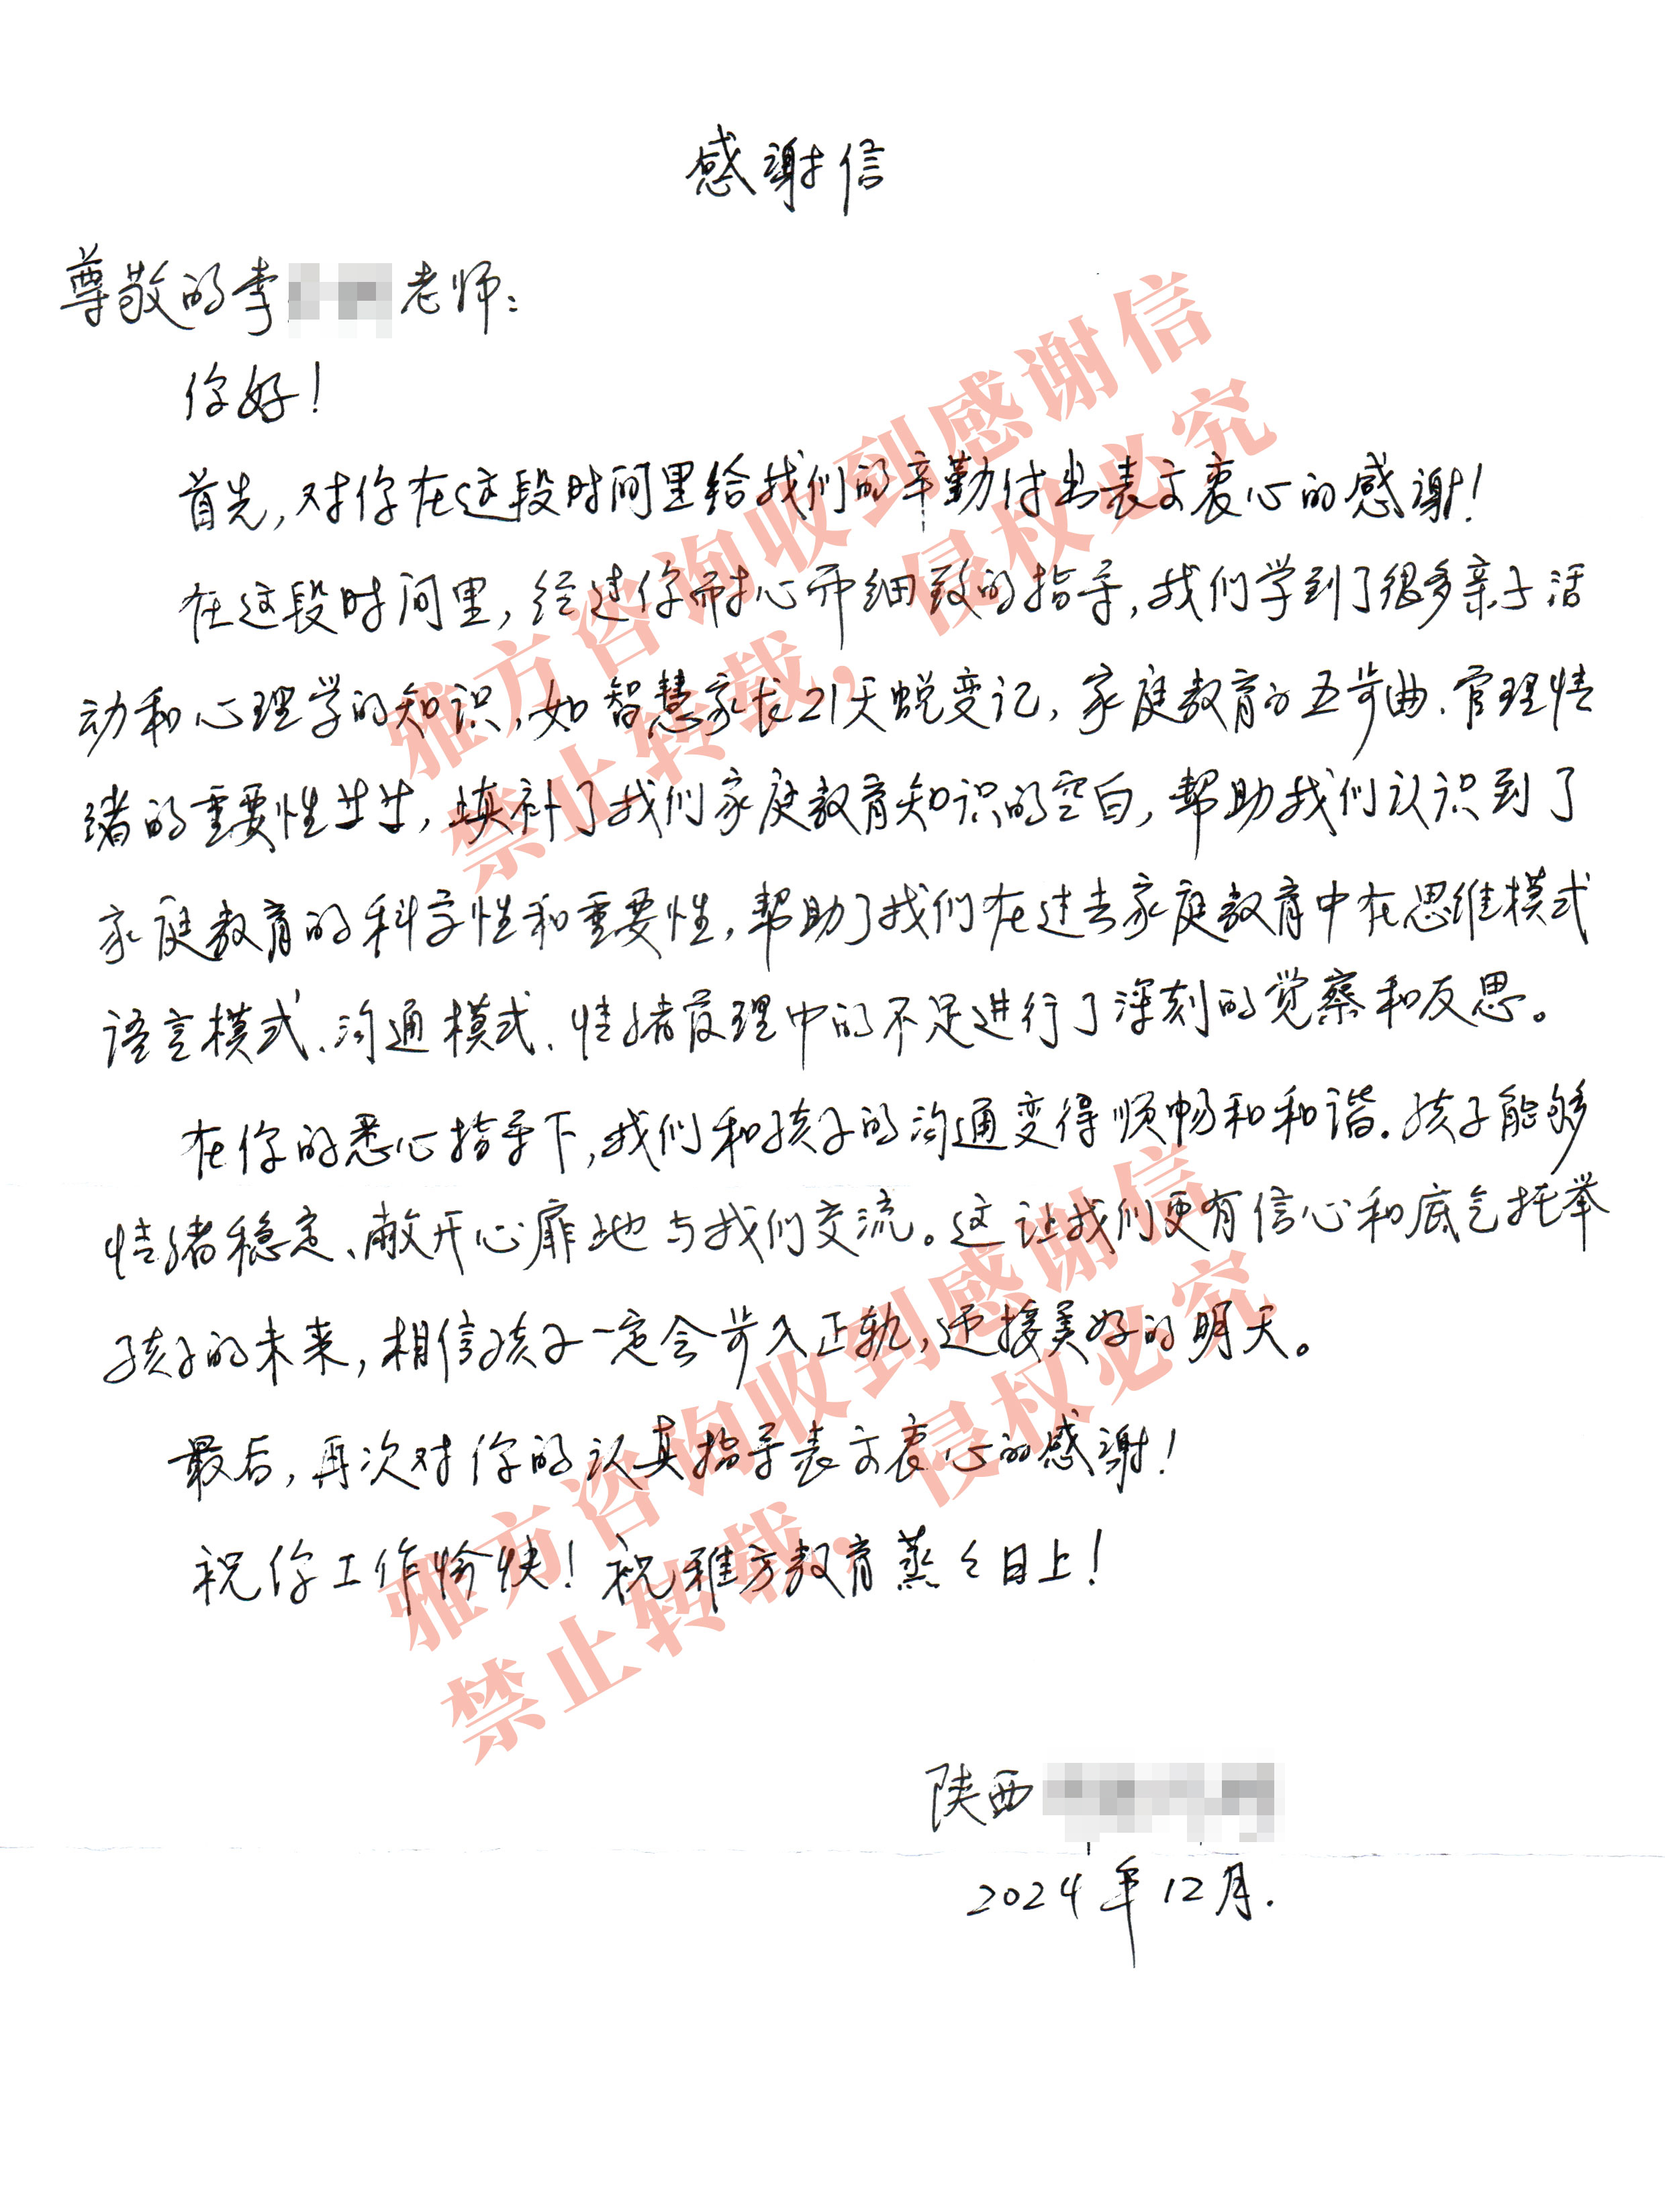 感谢信
尊敬的李 老师：
你好！
首先，对你在这段时间里给我们的辛勤付出表示衷心的感谢！
在这段时间里，经过你耐心而细致的指导，我们学到了很多亲子活
动和心理学的知识，如智慧家长21天蜕变记，家庭教育的五步曲、管理情
绪的重要性等等，填补了我们家庭教育知识的空白，帮助我们认识到了
家庭教育的科学性和重要性，帮助了我们在过去家庭教育中在思维模式
语言模式、沟通模式、情绪管理中的不足进行了深刻的觉察和反思。
在你的悉心指导下，我们和孩子的沟通变得顺畅和和谐。孩子能够
情绪稳定、敞开心扉地与我们交流。这让我们更有信心和底气托举
孩子的未来，相信孩子一定会步入正轨，迎接美好的明天。
最后，再次对你的认真指导表示衷心的感谢！
祝你工作愉快！祝雅方教育蒸々日上！
陕西
2024年12月.
雅方咨询收到感谢信
禁止转载，侵权必究
雅方咨询收到感谢信
禁止转载，侵权必究